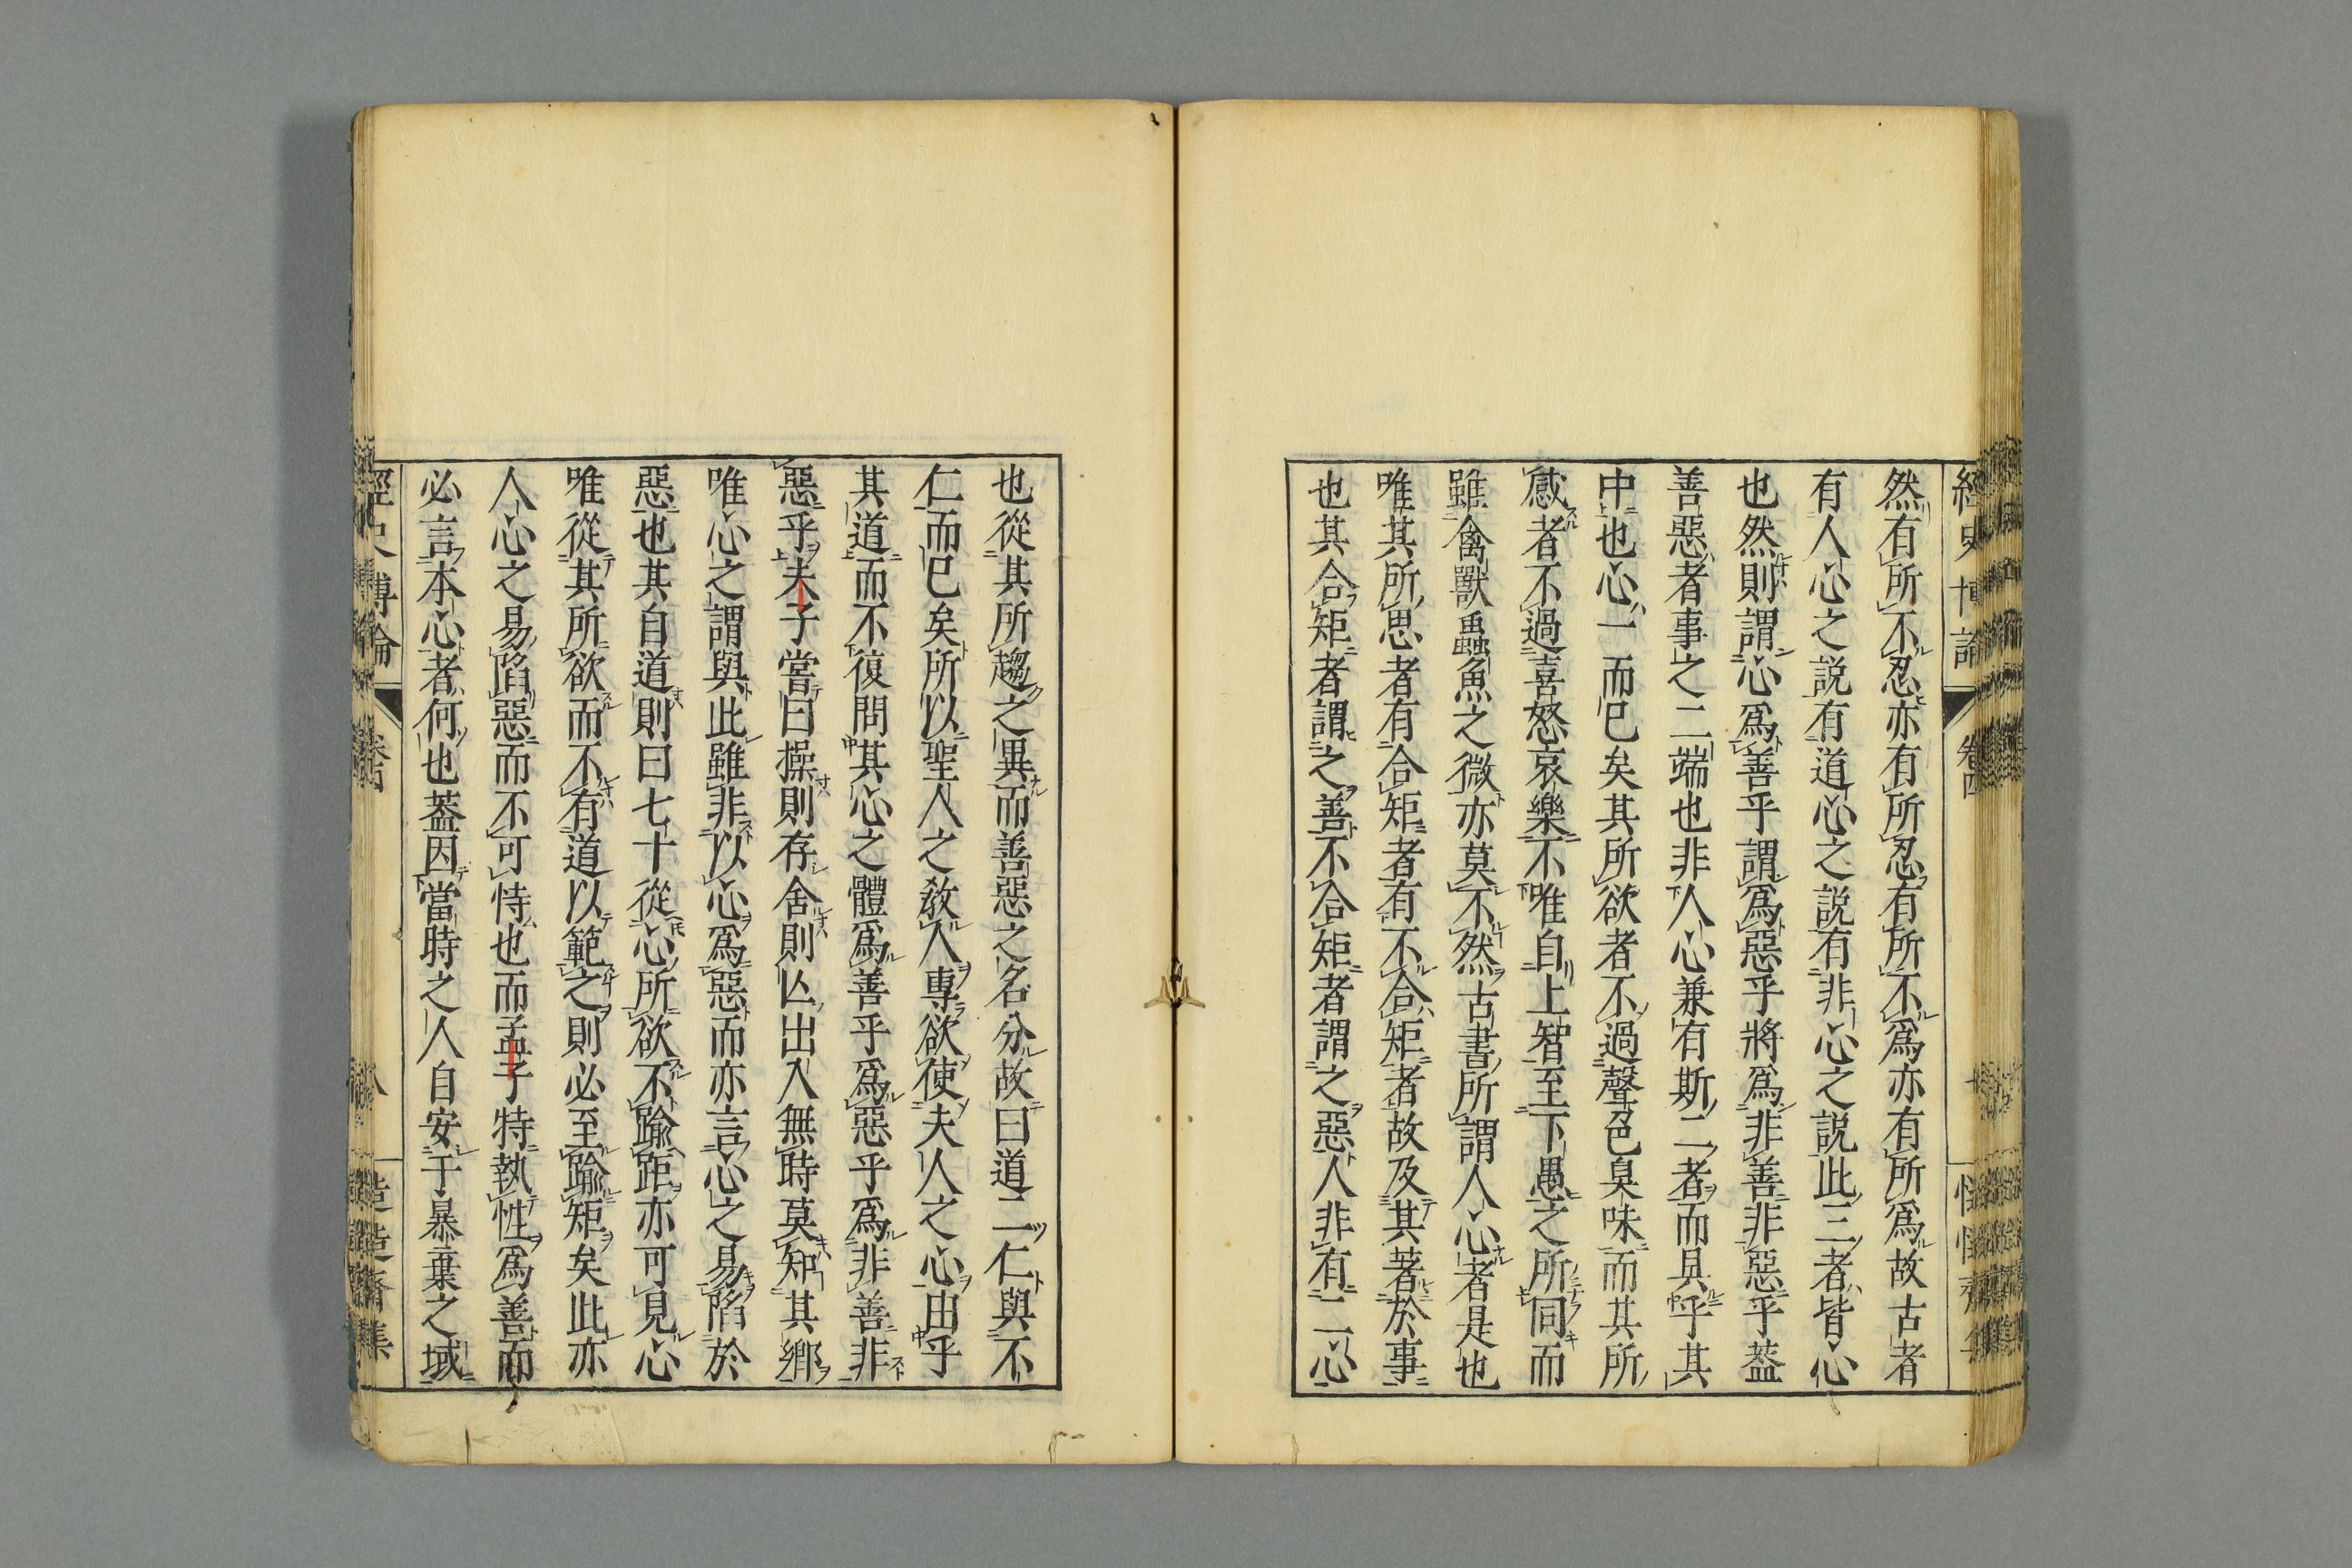 然有所不忍亦有所忍有所不爲亦有所爲故古者
有人心之説有道心之説有非心之説此三者皆心
也然則謂心爲善乎謂爲惡乎將爲非善非惡乎蓋
善惡者事之二端也非人心兼有斯二者而具乎其
中也心一而已矣其所欲者不過聲色臭味而其所
慼者不過喜怒哀樂不唯自上智至下愚之所同而
雖禽獸蟲魚之微亦莫不然古書所謂人心者是也
唯其所思者有合矩者有不合矩者故及其著於事
也其合矩者謂之善不合矩者謂之惡人非有二心
也從其所趨之異而善惡之名分故曰道二仁與不
仁而已矣所以聖人之教人專欲使夫人之心由乎
其道而不復問其心之體爲善乎爲惡乎爲非善非
惡乎夫子嘗曰操則存舍則亾出入無時莫知其鄉
唯心之謂與此雖非以心爲惡而亦言心之易陷於
惡也其自道則曰七十從心所欲不踰距亦可見心
唯從其所欲而不有道以範之則必至踰矩矣此亦
人心之易陷惡而不可恃也而孟子特執性爲善而
必言本心者何也蓋因當時之人自安于暴棄之域
經史博論 卷四 八